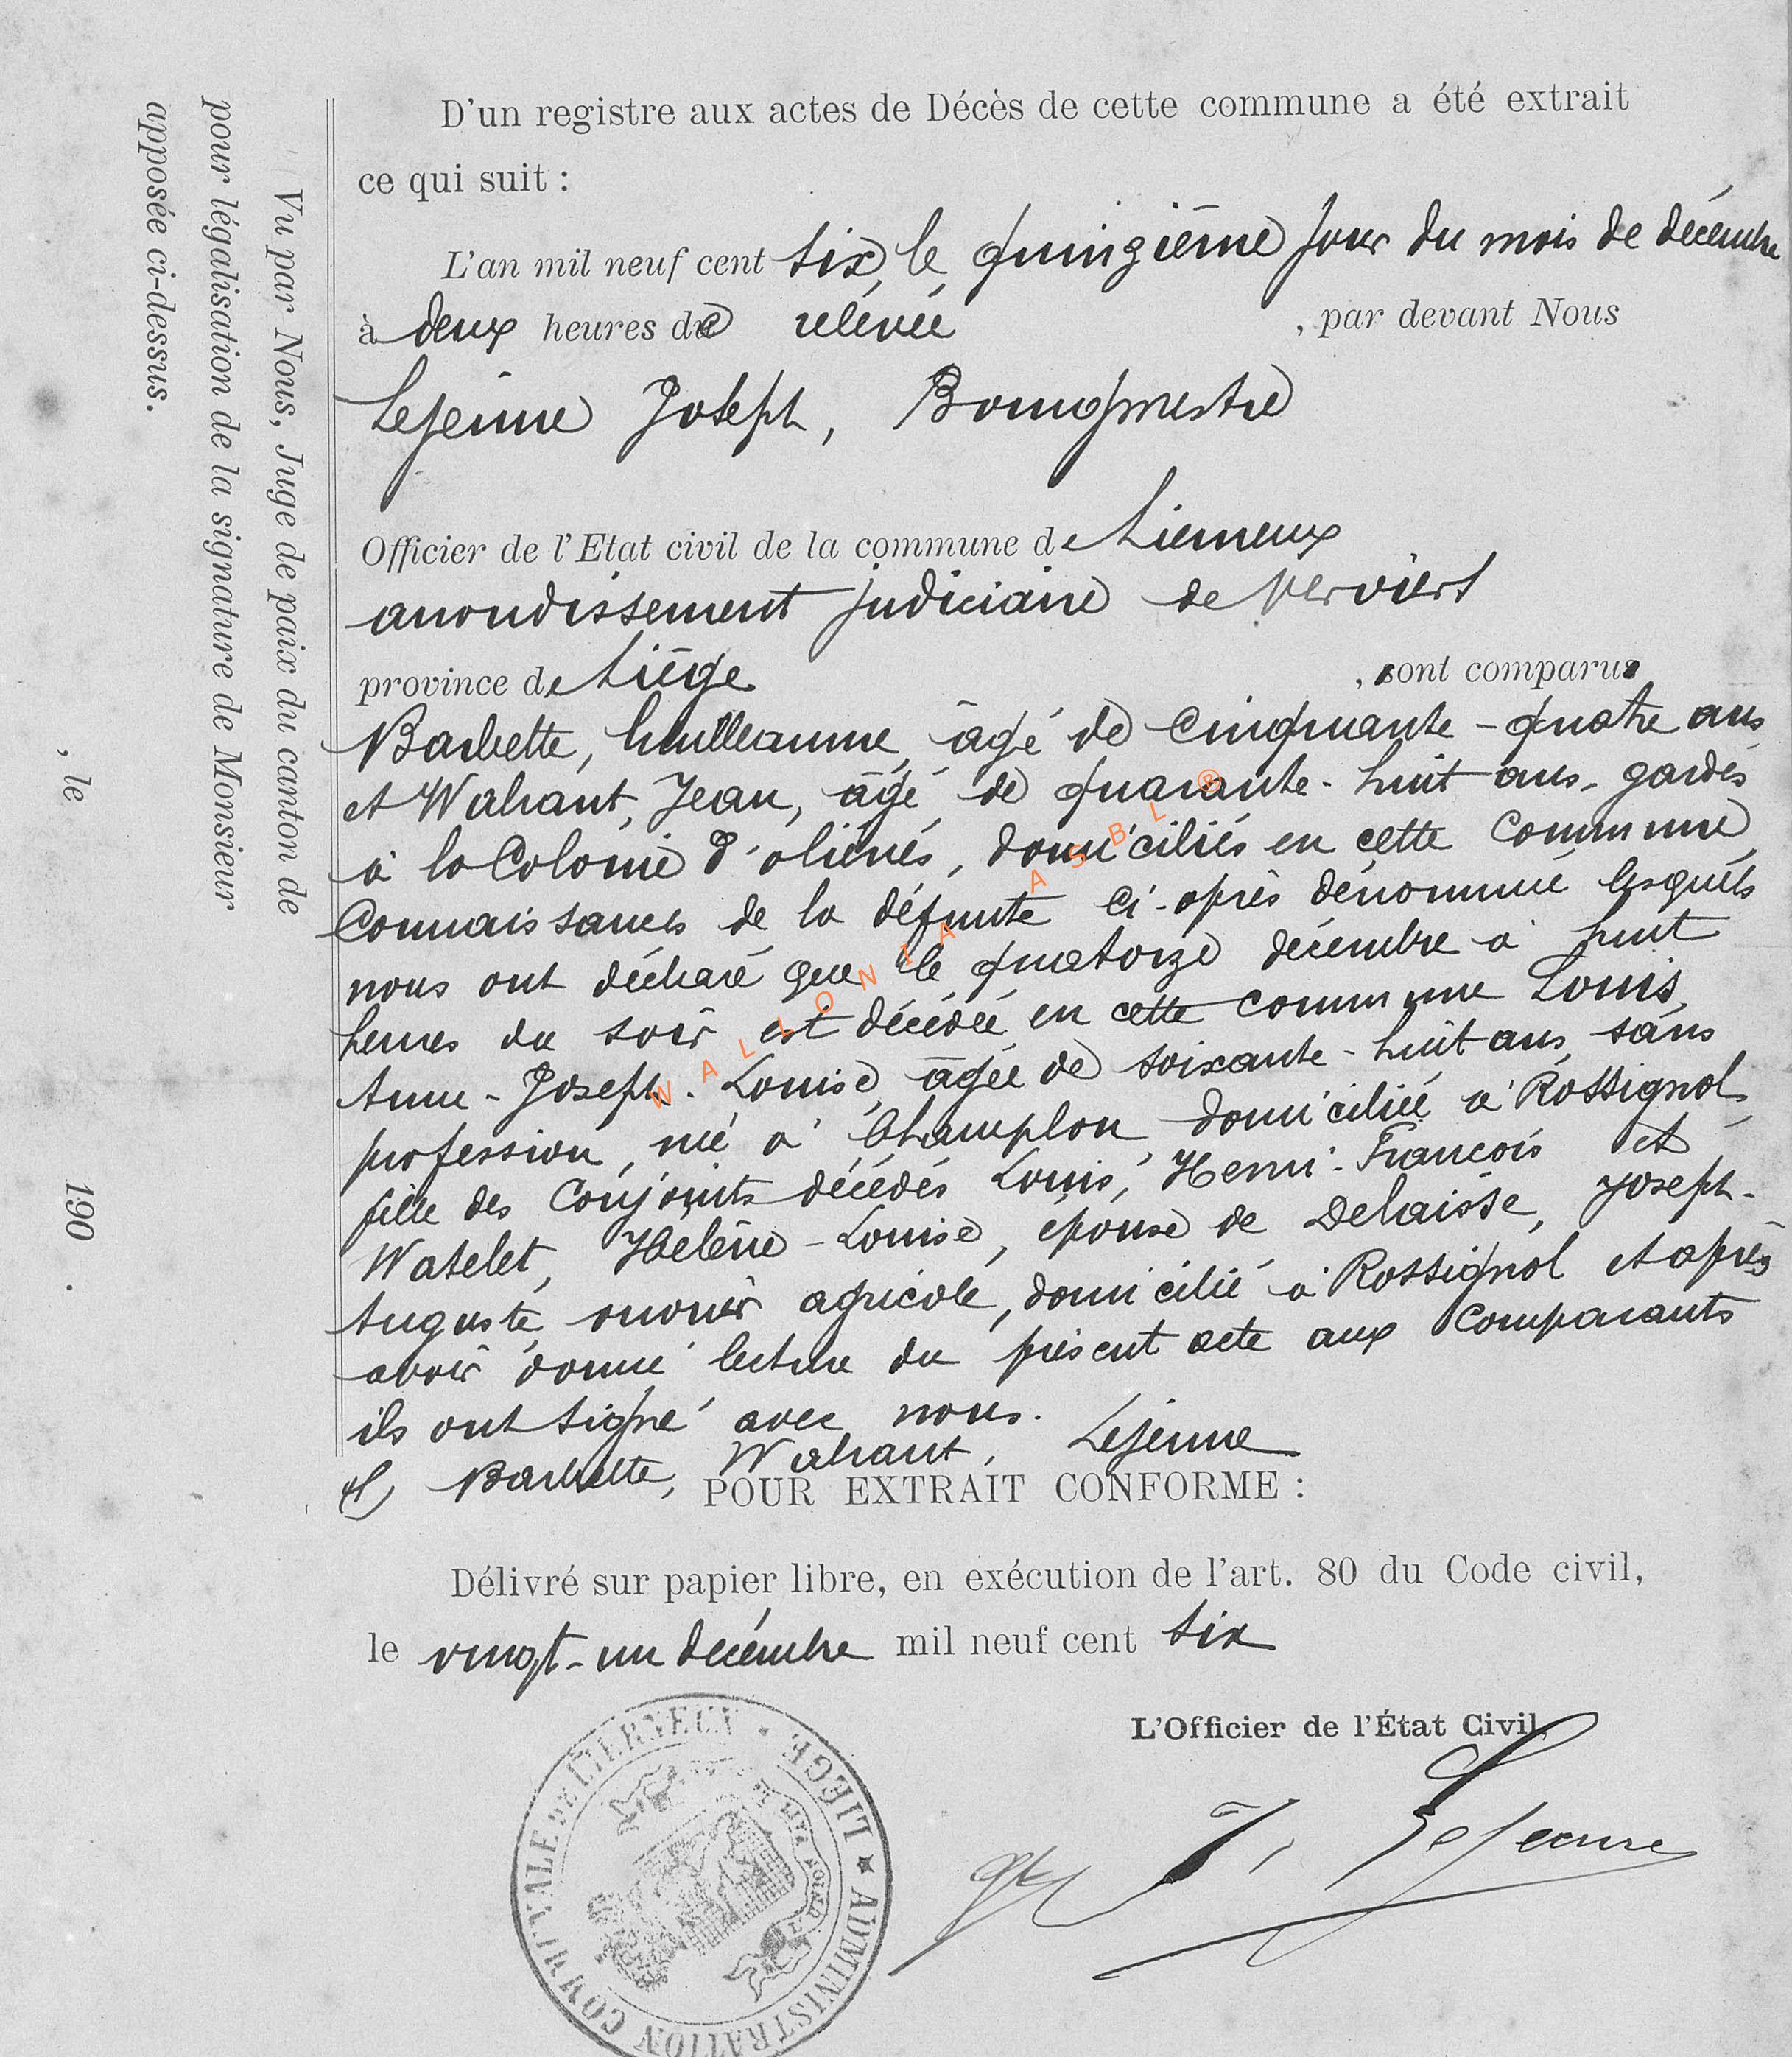 D'un registre aux actes de Décès de cette commune a été extrait
ce qui suit :
L'an mil neuf cent six, le quinzième jour du mois de décembre
à deux heures de relévée , par devant Nous
Lejeune Joseph, Bourgmestre
Officier de l'Etat civil de la commune de Lierneux
arrondissement judiciaire de Verviers
province de Liège , sont comparus
Barbette, Guilleaume, âgé de cinquante-quatre ans
et Wahant, Jean, âgé de quarante-huit ans, gardes
à la Colonie d'aliénés, domiciliés en cette commune
Connaissances de la défunte ci-après dénommée lesquels
nous ont déclaré que le quatorze décembre à huit
heures du soir est décédée en cette commune Louis,
Anne-Joseph-Louise, âgée de soixante-huit ans, sans
profession, née à Champlon, domiciliée à Rossignol,
fille des conjoints décédés Louis, Henri-François et
Watelet, Hélène-Louise, épouse de Delaisse, Joseph-
Auguste, ouvrier agricole, domicilié à Rossignol et après
avoir donné lecture du présent acte aux comparants
ils ont signé avec nous.
Barbette, Wahant, Lejeune
POUR EXTRAIT CONFORME :
Délivré sur papier libre, en exécution de l'art. 80 du Code civil,
le vingt-un décembre mil neuf cent six
L'Officier de l'État Civil,
J. Lejeune
ADMINISTRATION COMMUNALE DE LIERNEUX * LIEGE *
Vu par Nous, Juge de paix du canton de
pour légalisation de la signature de Monsieur
apposée ci-dessus.
, le 190 .
WALLONIA ASBL ®